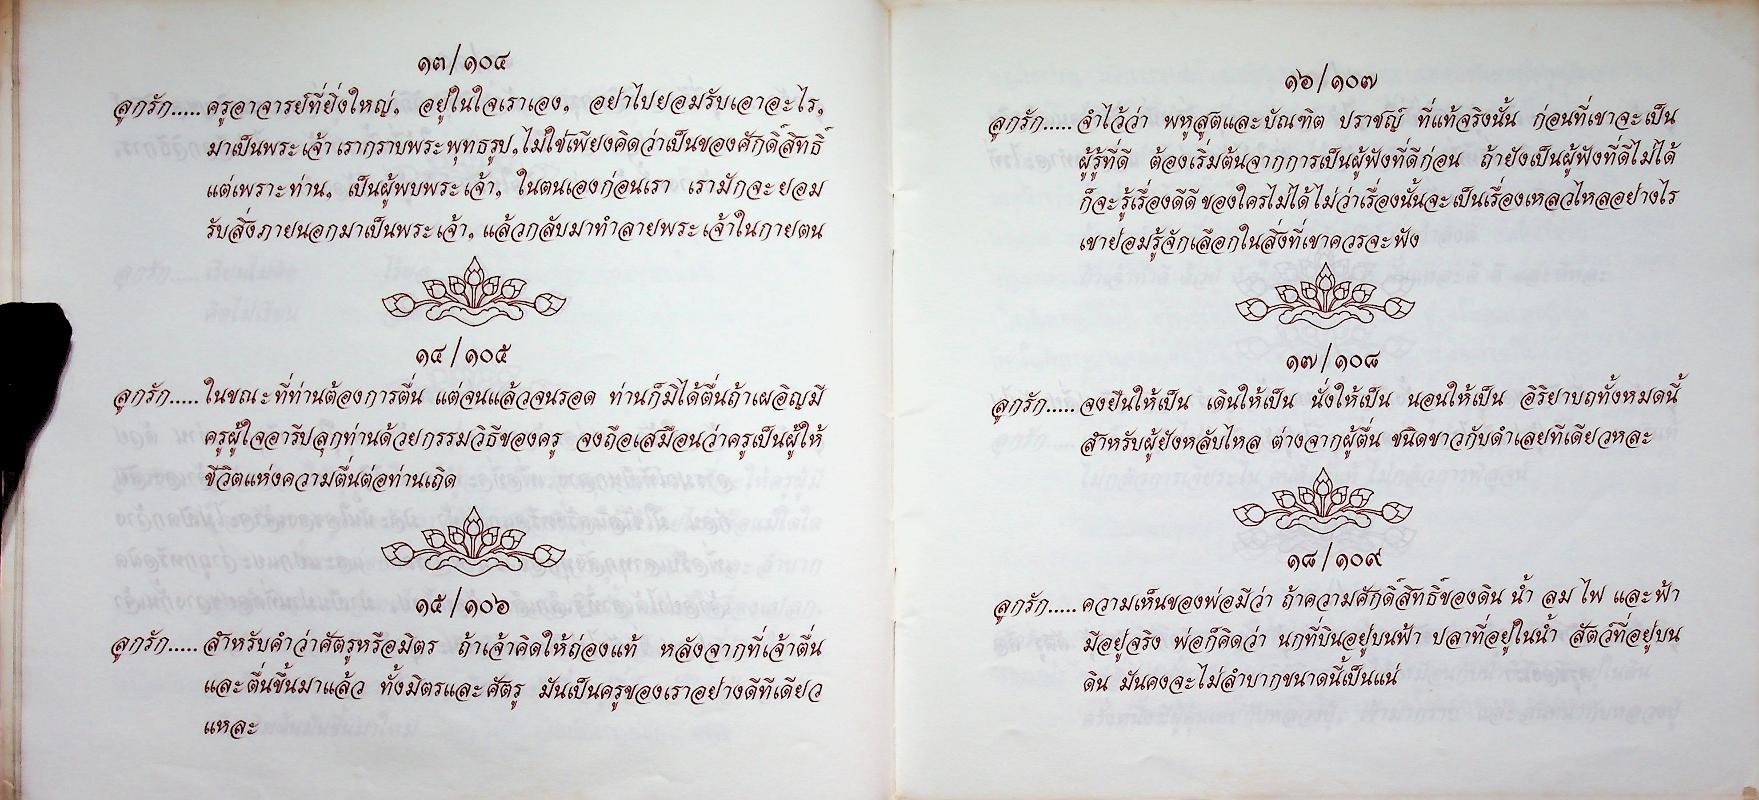 ๑๓/๑๐๔
ลูกรัก.....ครูอาจารย์ที่ยิ่งใหญ่, อยู่ในใจเราเอง, อย่าไปยอมรับเอาอะไร,
มาเป็นพระเจ้า เรากราบพระพุทธรูป, ไม่ใช่เพียงคิดว่าเป็นของศักดิ์สิทธิ์
แต่เพราะท่าน, เป็นผู้พบพระเจ้า, ในตนเองก่อนเรา เรามักจะยอม
รับสิ่งภายนอกมาเป็นพระเจ้า, แล้วกลับมาทำลายพระเจ้าในกายตน
๑๔/๑๐๕
ลูกรัก.....ในขณะที่ท่านต้องการตื่น แต่จนแล้วจนรอด ท่านก็มิได้ตื่นถ้าเผอิญมี
ครูผู้ใจอารีปลุกท่านด้วยกรรมวิธีของครู จงถือเสมือนว่าครูเป็นผู้ให้
ชีวิตแห่งความตื่นต่อท่านเถิด
๑๕/๑๐๖
ลูกรัก.....สำหรับคำว่าศัตรูหรือมิตร ถ้าเจ้าคิดให้ถ่องแท้ หลังจากที่เจ้าตื่น
และตื่นขึ้นมาแล้ว ทั้งมิตรและศัตรู มันเป็นครูของเราอย่างดีทีเดียว
แหละ
๑๖/๑๐๗
ลูกรัก.....จำไว้ว่า พหูสูตและบัณฑิต ปราชญ์ ที่แท้จริงนั้น ก่อนที่เขาจะเป็น
ผู้รู้ที่ดี ต้องเริ่มต้นจากการเป็นผู้ฟังที่ดีก่อน ถ้ายังเป็นผู้ฟังที่ดีไม่ได้
ก็จะรู้เรื่องดีดีของใครไม่ได้ไม่ว่าเรื่องนั้นจะเป็นเรื่องเหลวไหลอย่างไร
เขาย่อมรู้จักเลือกในสิ่งที่เขาควรจะฟัง
๑๗/๑๐๘
ลูกรัก.....จงยืนให้เป็น เดินให้เป็น นั่งให้เป็น นอนให้เป็น อิริยาบถทั้งหมดนี้
สำหรับผู้ยังหลับไหล ต่างจากผู้ตื่น ชนิดขาวกับดำเลยทีเดียวหละ
๑๘/๑๐๙
ลูกรัก.....ความเห็นของพ่อมีว่า ถ้าความศักดิ์สิทธิ์ของดิน น้ำ ลม ไฟ และฟ้า
มีอยู่จริง พ่อก็คิดว่า นกที่บินอยู่บนฟ้า ปลาที่อยู่ในน้ำ สัตว์ที่อยู่บน
ดิน มันคงจะไม่ลำบากขนาดนี้เป็นแน่